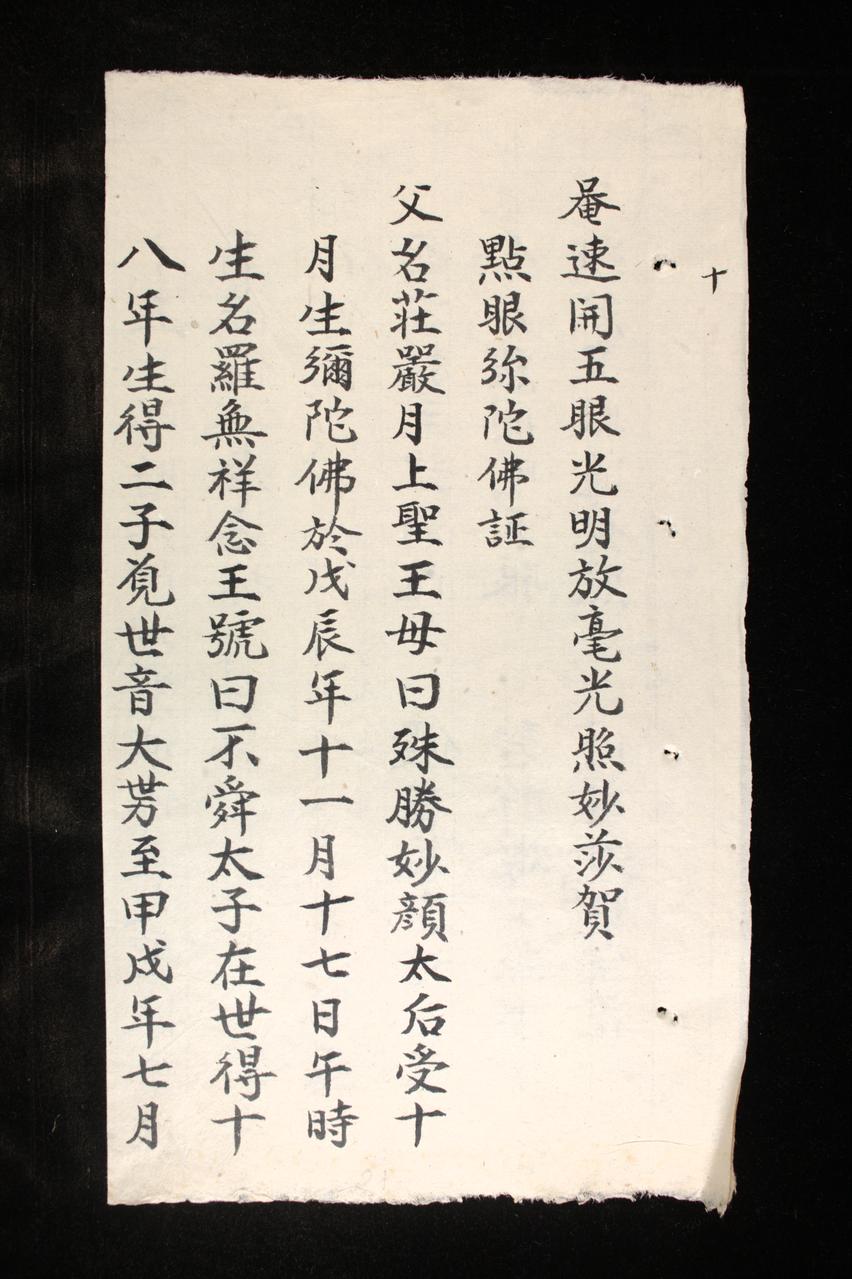 十
唵速開五眼光明放毫光照妙莎賀
點眼弥陀佛証
父名莊嚴月上聖王母曰殊勝妙顔太后受十
月生彌陀佛於戊辰年十一月十七日午時
生名羅無祥念王號曰不舜太子在世得十
八年生得二子覓世音大势至甲戌年七月